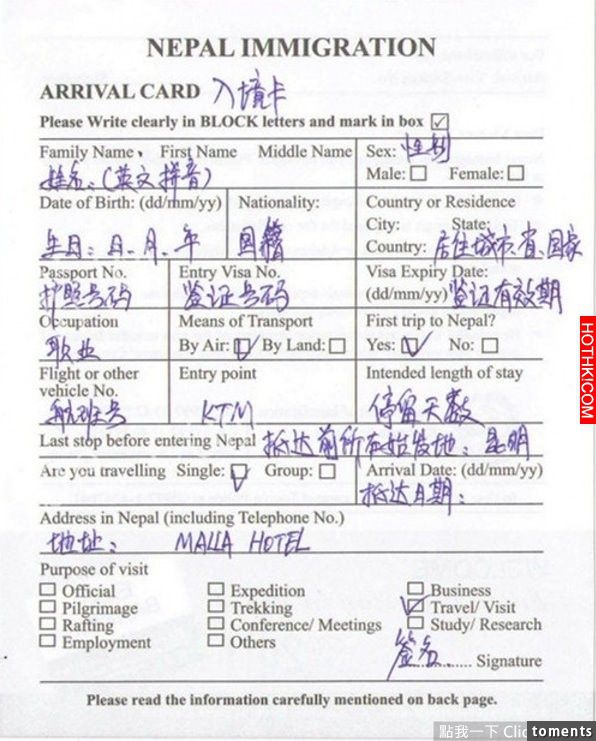 NEPAL IMMIGRATION
ARRIVAL CARD 入境卡
Please Write clearly in BLOCK letters and mark in box
Family Name, First Name Middle Name
姓名:(英文拼音)
Sex: 性别
Male: Female:
Date of Birth: (dd/mm/yy)
生日: 日. 月. 年
Nationality:
国籍
Country or Residence
City: State:
Country: 居住城市.省.国家
Passport No.
护照号码
Entry Visa No.
签证号码
Visa Expiry Date:
(dd/mm/yy) 签证有效期
Occupation
职业
Means of Transport
By Air: By Land:
First trip to Nepal?
Yes: No:
Flight or other
vehicle No.
航班号
Entry point
KTM
Intended length of stay
停留天数
Last stop before entering Nepal 抵达前所在始发地: 昆明
Are you travelling Single: Group:
Arrival Date: (dd/mm/yy)
抵达日期:
Address in Nepal (including Telephone No.)
地址: MALLA HOTEL
Purpose of visit
Official
Pilgrimage
Rafting
Employment
Expedition
Trekking
Conference/ Meetings
Others
Business
Travel/ Visit
Study/ Research
签名...... Signature
Please read the information carefully mentioned on back page.
HOTHK.COM
點我一下 Clic
toments